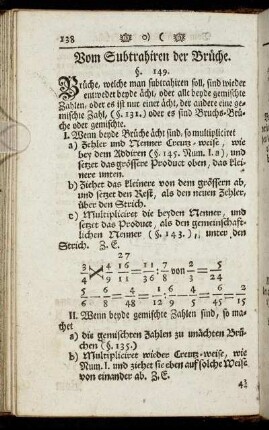 138 ❁ ) o ( ❁
Vom Subtrahiren der Brüche.
§. 149.
Brüche, welche man subtrahiren soll, sind wieder
entweder beyde ächt, oder alle beyde gemischte
Zahlen, oder es ist nur einer ächt, der andere eine ge-
mischte Zahl, (§. 131.) oder es sind Bruchs-Brü-
che oder gemischte.
I. Wenn beyde Brüche ächt sind, so multiplicirt
a) Zehler und Nenner Creutz-weise, wie
bey dem Addiren (§. 145. Num. I. a) und
setzet das grössere Product oben, das klei-
nere unten.
b) Ziehet das kleinere von dem grössern ab,
und setzet den Rest, als den neuen Zehler,
über den Strich.
c) Multipliciret die beyden Nenner, und
setzet das Product, als den gemeinschaft-
lichen Nenner (§. 143.), unter den
Strich. Z. E.
27
II. Wenn beyde gemischte Zahlen sind, so ma-
chet
a) die gemischten Zahlen zu unächten Brü-
chen (§. 135.)
b) Multipliciret wieder Creutz-weise, wie
Num. I. und ziehet sie eben auf solche Weise
von einander ab. Z. E.